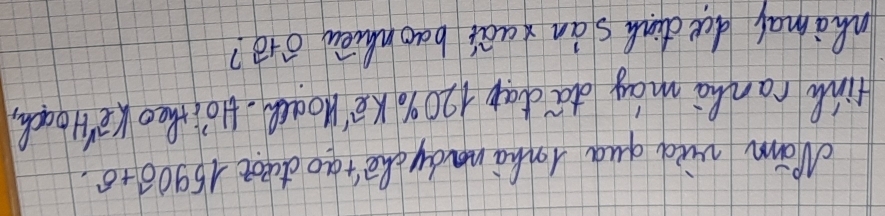 Năm vừa qua 1 nhà máy chế tạo được 1590 ô tô.
tính ra nhà máy đã đạt 120% Kế Hoạch. Hỏi theo Kế Hoạch,
nhà máy dự định sản xuất bao nhiêu ô tô?